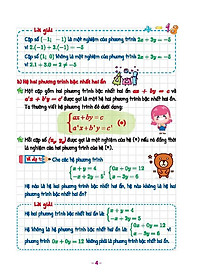 Lời giải
Cặp số (-1; -1) là một nghiệm của phương trình 2x + 3y = -5
vì 2.(-1) + 3.(-1) = -5
Cặp số (1; 0) không là một nghiệm của phương trình 2x + 3y = -5
vì 2.1 + 3.0 ≠ -5
b) Hệ hai phương trình bậc nhất hai ẩn
Một cặp gồm hai phương trình bậc nhất hai ẩn ax + by = c và
a'x + b'y = c' được gọi là một hệ hai phương trình bậc nhất hai ẩn.
Ta thường viết hệ phương trình đó dưới dạng:
{ax + by = c
a'x + b'y = c' (*)
Mỗi cặp số (x₀; y₀) được gọi là một nghiệm của hệ (*) nếu nó đồng thời
là nghiệm của hai phương trình của hệ (*).
Ví dụ Cho các hệ phương trình
{x + y = 4
-x + 3y = 5 {0x + 0y = 12
x - 6y = 3
Hệ nào là hệ hai phương trình bậc nhất hai ẩn, hệ nào không là hệ hai
phương trình bậc nhất hai ẩn?
Lời giải
Hệ hai phương trình bậc nhất hai ẩn là {x + y = 4
-x + 3y = 5
Hệ không là hệ hai phương trình bậc nhất hai ẩn là {0x + 0y = 12
x - 6y = 3 vì
phương trình 0x + 0y = 12 không phải là phương trình bậc nhất hai ẩn.
- 4 -